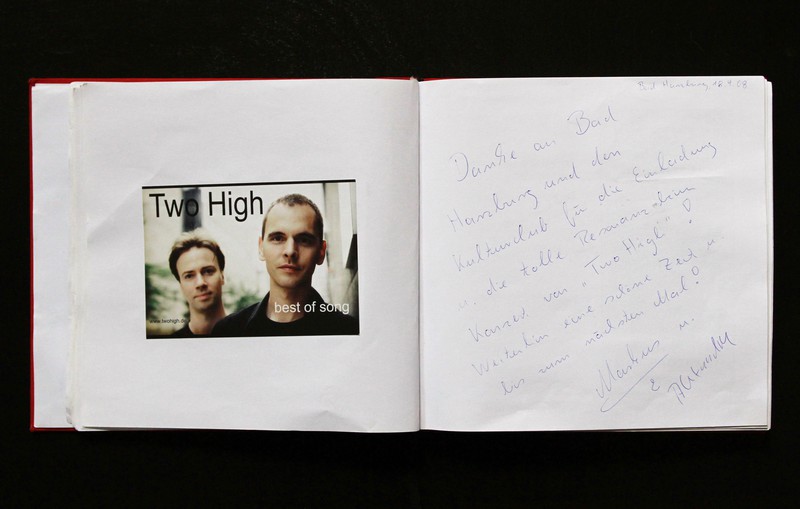 Two High
best of song
www.twohigh.de
Bad Harzburg, 12.9.08
Danke an Bad
Harzburg und den
Kulturclub für die Einladung
u. die tolle Resonanz beim
Konzert von „Two High"!
Weiterhin eine schöne Zeit u.
bis zum nächsten Mal!
Markus u.